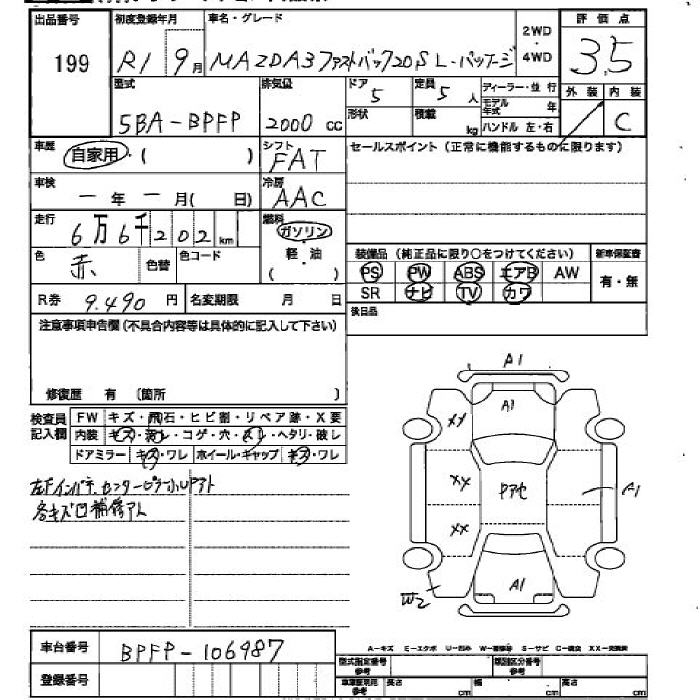 出品番号 199
初度登録年月 R1 9月
車名・グレード MAZDA3ファストバック20S L-パッケージ
2WD・4WD
評価点 3.5
型式 5BA-BPFP
排気量 2000 cc
ドア 5
形状
定員 5人
積載 kg
ディーラー・並行
モデル年式 年
ハンドル 左・右
外装 / 内装 C
車歴 自家用・( )
シフト FAT
セールスポイント(正常に機能するものに限ります)
車検 一年一月( 日)
冷房 AAC
走行 6万6千202km
燃料 ガソリン・軽・油・( )
色 赤 色替 色コード
装備品(純正品に限り○をつけてください) 新車保証書
PS PW ABS エアB AW 有・無
SR ナビ TV カワ
R券 9.490円 名変期限 月 日
後日品
注意事項申告欄(不具合内容等は具体的に記入して下さい)
修復歴 有 〔箇所 〕
検査員記入欄
FW キズ・飛石・ヒビ割・リペア跡・X要
内装 キズ・汚レ・コゲ・穴・スレ・ヘタリ・破レ
ドアミラー キズ・ワレ ホイール・キャップ キズ・ワレ
各キズ凹補修アト
A1
A1
XX
XX
XX
Pアセ
A1
A1
W2
A-キズ E-エクボ U-凹み S-サビ
車台番号 BPFP-106987
登録番号
型式指定番号 参考
類別区分番号 参考
長さ cm 幅 cm 高さ cm